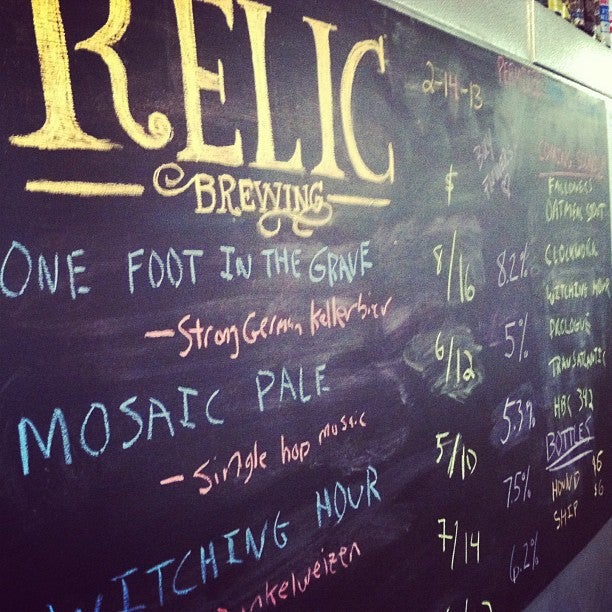 RELIC
BREWING
2-14-13
$
ONE FOOT IN THE GRAVE 8/16 8.2%
- Strong German Kellerbier
MOSAIC PALE 6/12 5%
- Single hop mosaic
WITCHING HOUR 5/10 5.3%
nkelweizen
7/14 7.5%
6.2%
COMING
OATMEAL STOUT
CLOCKWORK
WITCHING HOUR
PROLOGUE
TRANSATLANTIC
HBC 342
BOTTLES
HOUND $6
SHIP $6